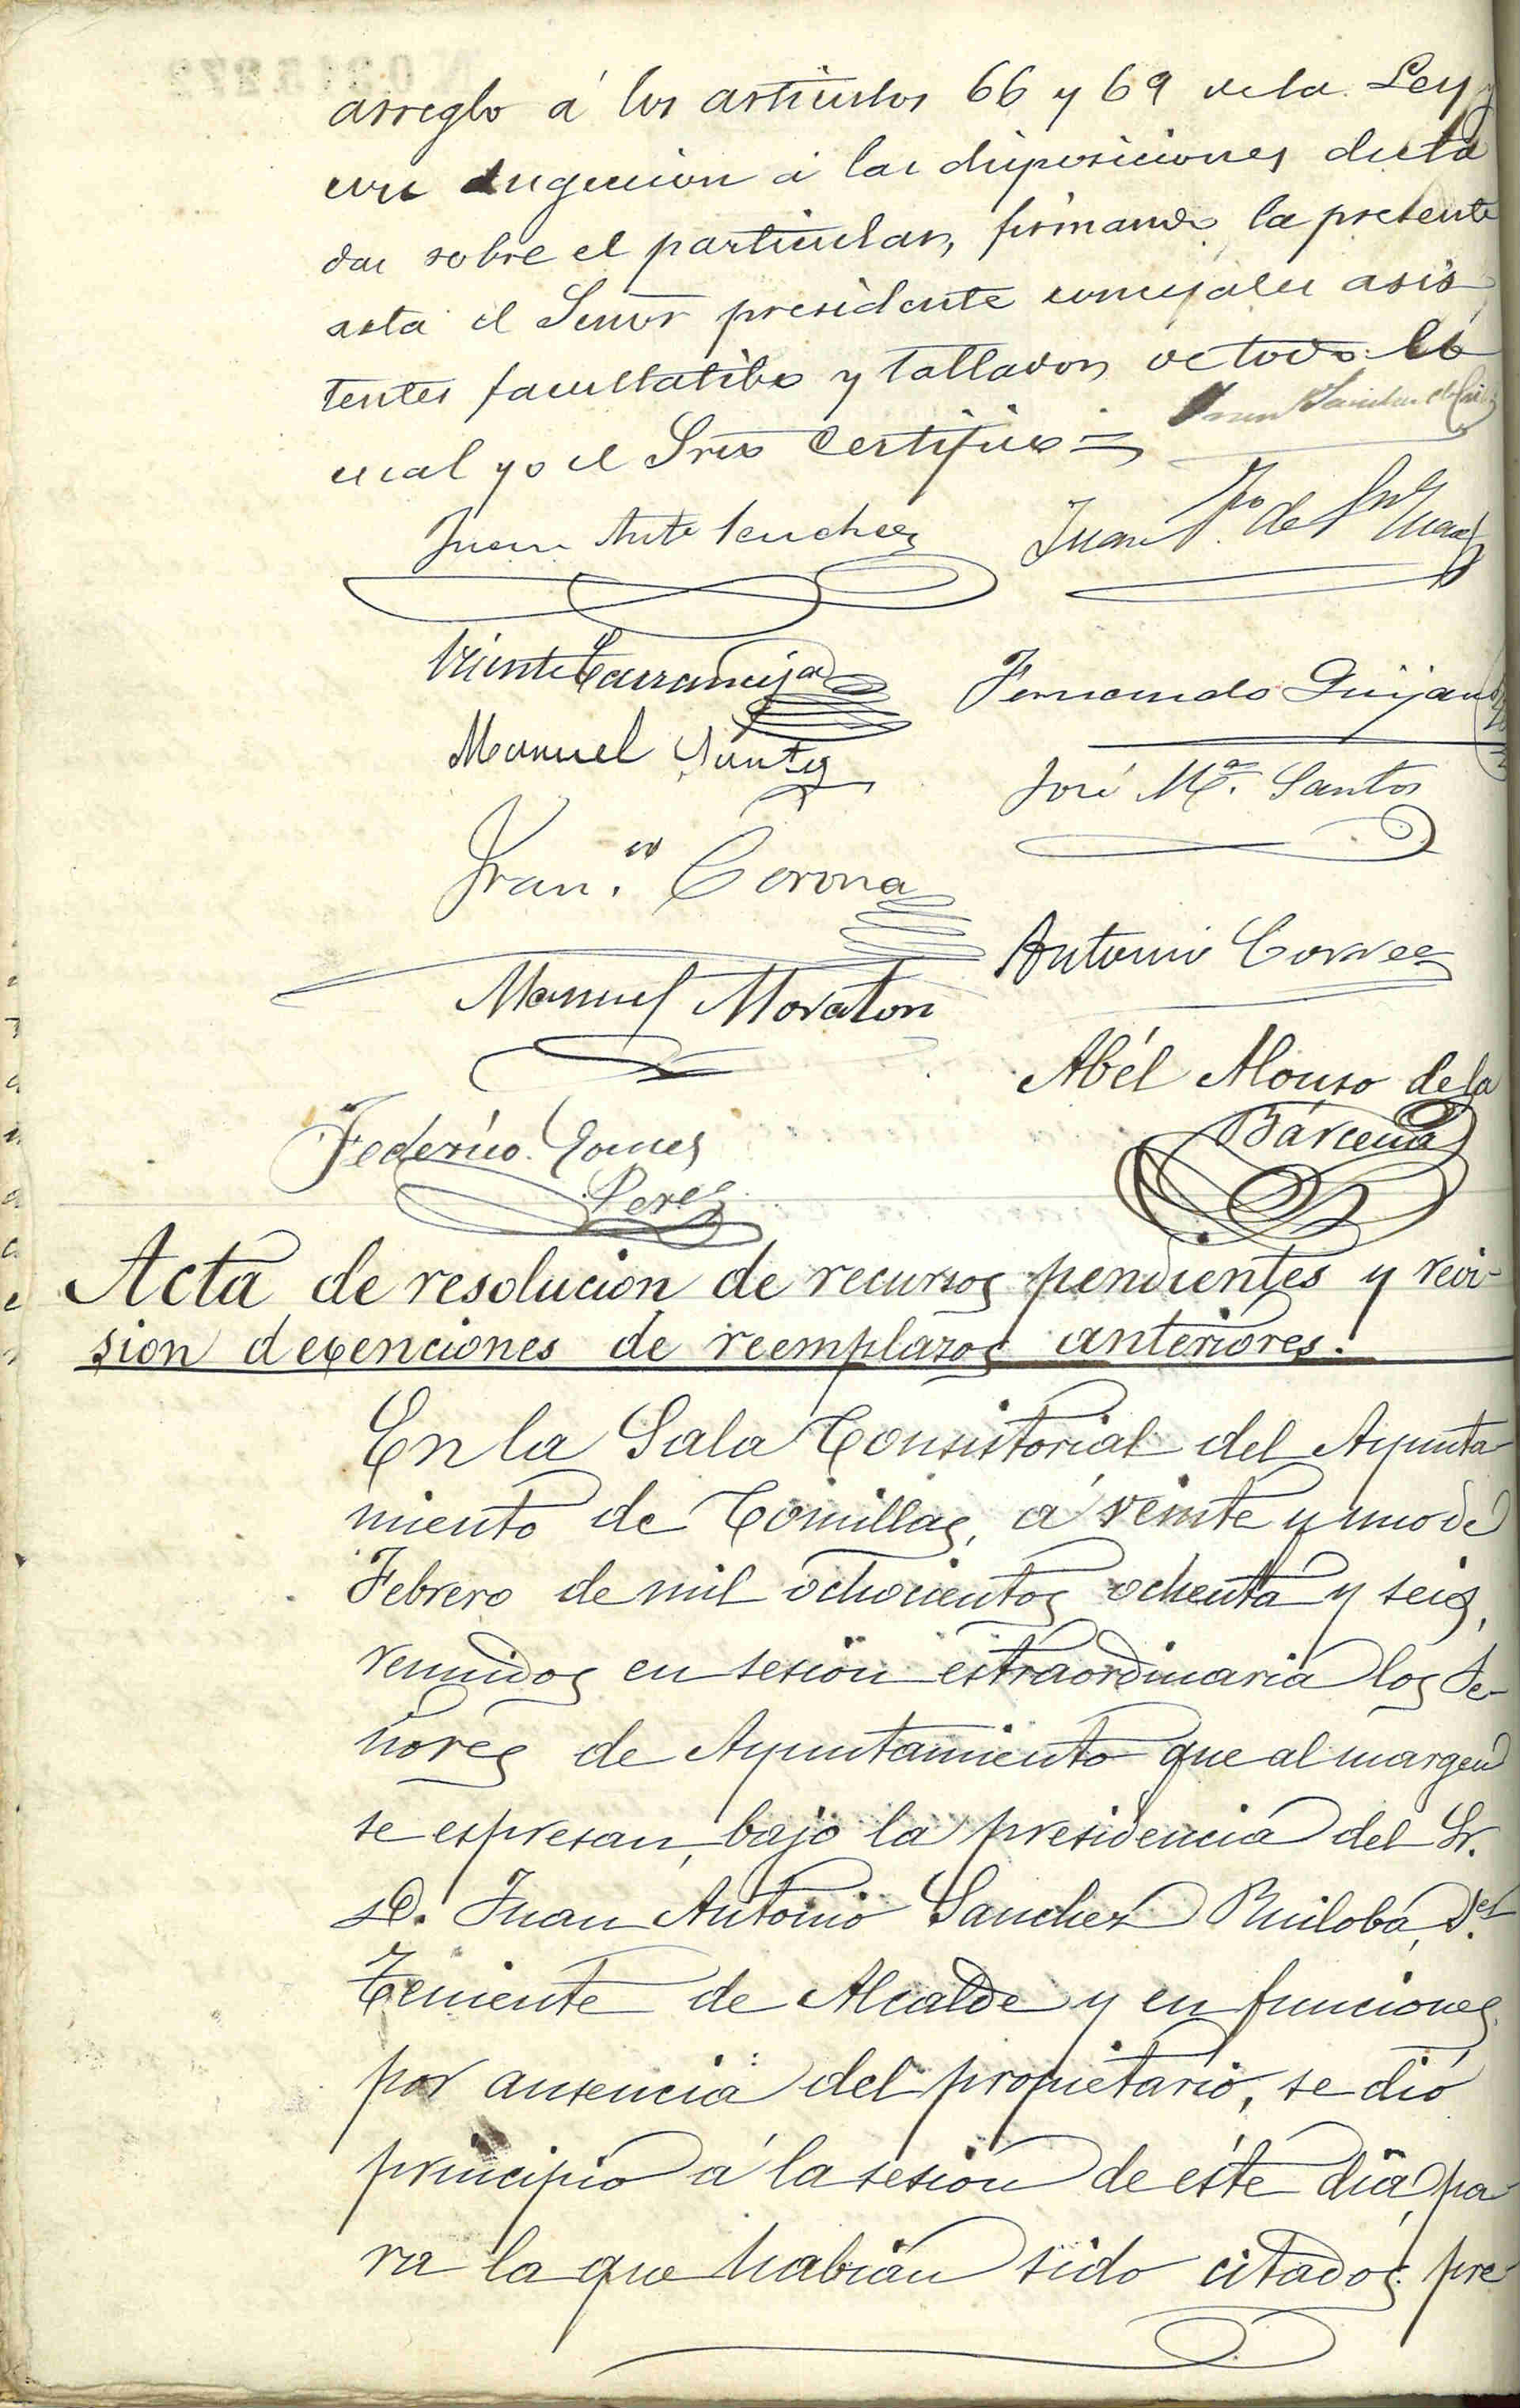 arreglo á los articulos 66 y 69 de la Ley y
con sugecion á las disposiciones dicta
das sobre el particular, firmando la presente
acta el Señor presidente concejales asis
tentes facultatibo y tallador, de todo lo
cual yo el Srio Certifico =
Juan Anto Sanchez
Juan
Vicente Carranceja
Fernando Quijano
Manuel
José Mª. Santos
Fran.co Corona
Antonio Correa
Manuel Moraton
Abél Alonso de la
Bárcena
Federico Gomez
Perez
Acta de resolucion de recursos pendientes y revi-
sion de exenciones de reemplazos anteriores.
En la Sala Consistorial del Ayunta
miento de Comillas, á veinte y uno de
Febrero de mil ochocientos ochenta y seis,
reunidos en sesion estraordinaria los Se-
ñores de Ayuntamiento que al margen
se espresan, bajo la presidencia del Sr.
D. Juan Antonio Sanchez Ruiloba,
Teniente de Alcalde y en funciones
por ausencia del propietario, se dió
principio á la sesion de éste dia, pa
ra la que habian sido citados pre